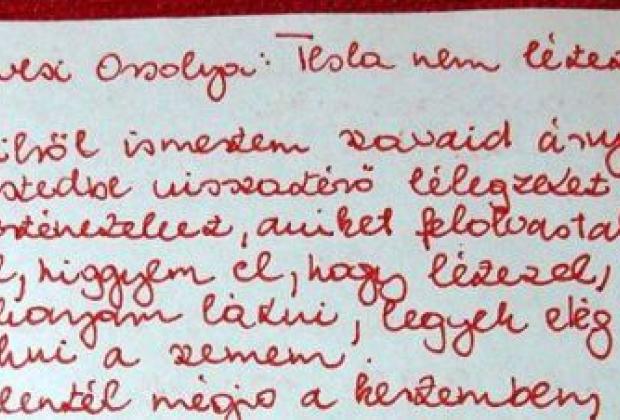 vesi Orsolya: Tesla nem létez
ilről ismertem szavaid árny
stedbe visszatérő lélegzetet
rténeteket, amiket felolvasta
l, higgyem el, hogy létezel,
karjam látni, legyek elég
hni a szemem.
lentél mégis a kezemben,